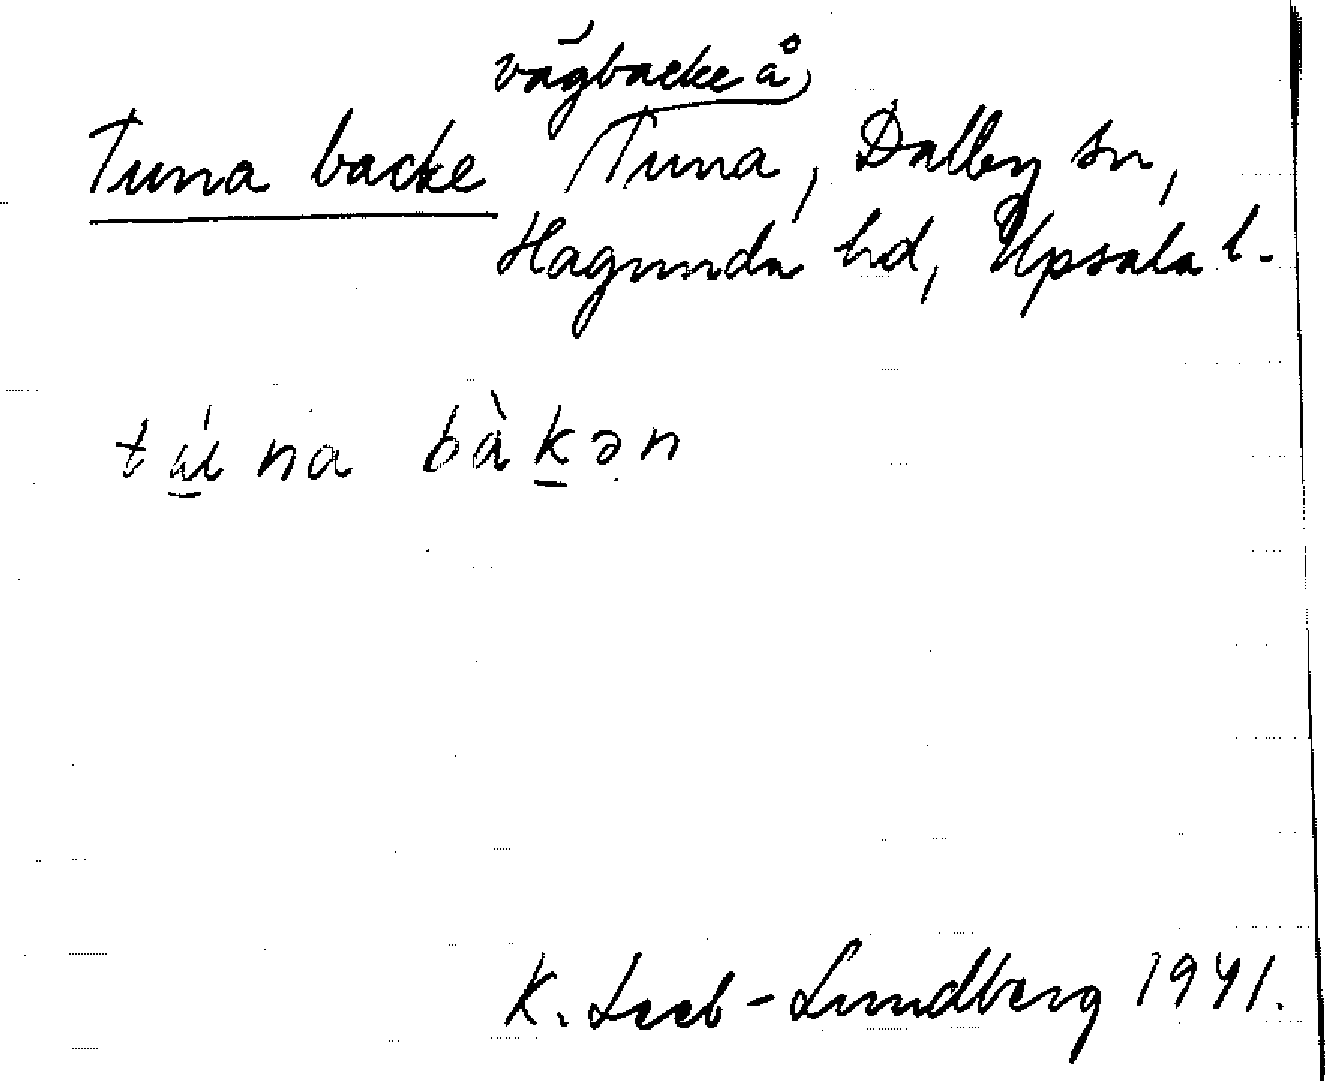 vägbacke å
Tuna backe Tuna, Dalby sn,
Hagunda hd, Upsala l.
tú̱na bàḵən
K. Leeb-Lundberg 1941.